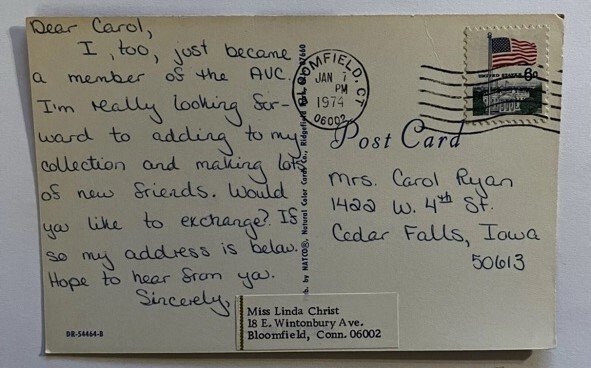 Dear Carol,
I, too, just became
a member of the AVC.
I'm really looking for-
ward to adding to my
collection and making lots
of new friends. Would
you like to exchange? If
so my address is below.
Hope to hear from you.
Sincerely,
Miss Linda Christ
18 E. Wintonbury Ave.
Bloomfield, Conn. 06002
DR-54464-B
by NATCO®, Natural Color Card Co., Ridgefield 07660
BLOOMFIELD, CT
JAN 7
PM
1974
06002
UNITED STATES 6c
Post Card
Mrs. Carol Ryan
1422 W. 4th St.
Cedar Falls, Iowa
50613